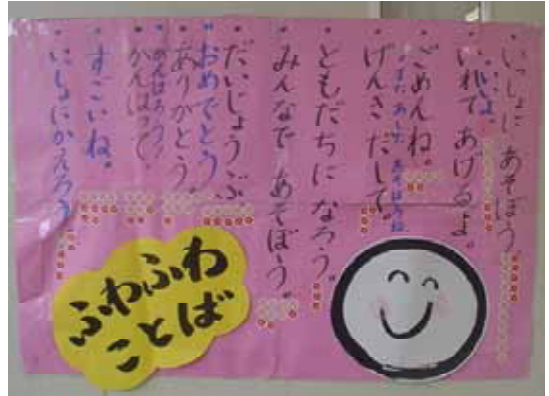 いっしょに あそぼう。
いいよ。
いれて あげるよ。
ごめんね。
また あした あそぼうね
げんき だして。
ともだちに なろう。
みんなで あそぼう。
だいじょうぶ
おめでとう
ありがとう。
がんばろう
がんばって
すごいね。
いっしょにかえろう
ふわふわ
ことば